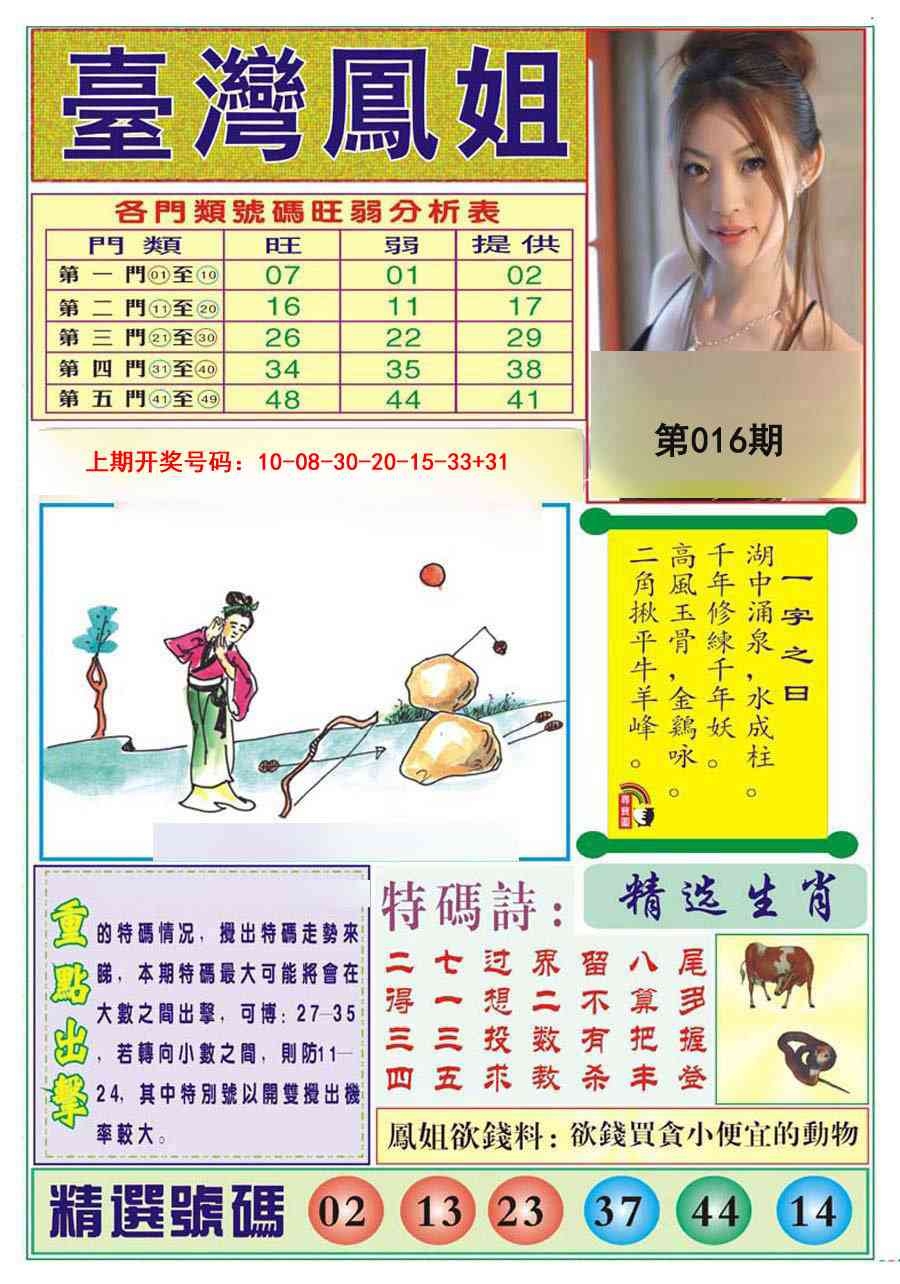 臺灣鳳姐
各門類號碼旺弱分析表
門類 旺 弱 提供
第一門01至10 07 01 02
第二門11至20 16 11 17
第三門21至30 26 22 29
第四門31至40 34 35 38
第五門41至49 48 44 41
第016期
上期开奖号码：10-08-30-20-15-33+31
一字之曰
湖中涌泉，水成柱。
千年修練千年妖。
高風玉骨，金鷄咏。
二角揪平牛羊峰。
尋寶圖
重點出擊
的特碼情况，攪出特碼走勢來
睇，本期特碼最大可能將會在
大數之間出擊，可博：27—35
，若轉向小數之間，則防11—
24，其中特別號以開雙攪出機
率較大。
特碼詩：
二七过界留八尾
得一想二不算多
三三投数有把握
四五求教杀丰登
精选生肖
鳳姐欲錢料：欲錢買貪小便宜的動物
精選號碼 02 13 23 37 44 14